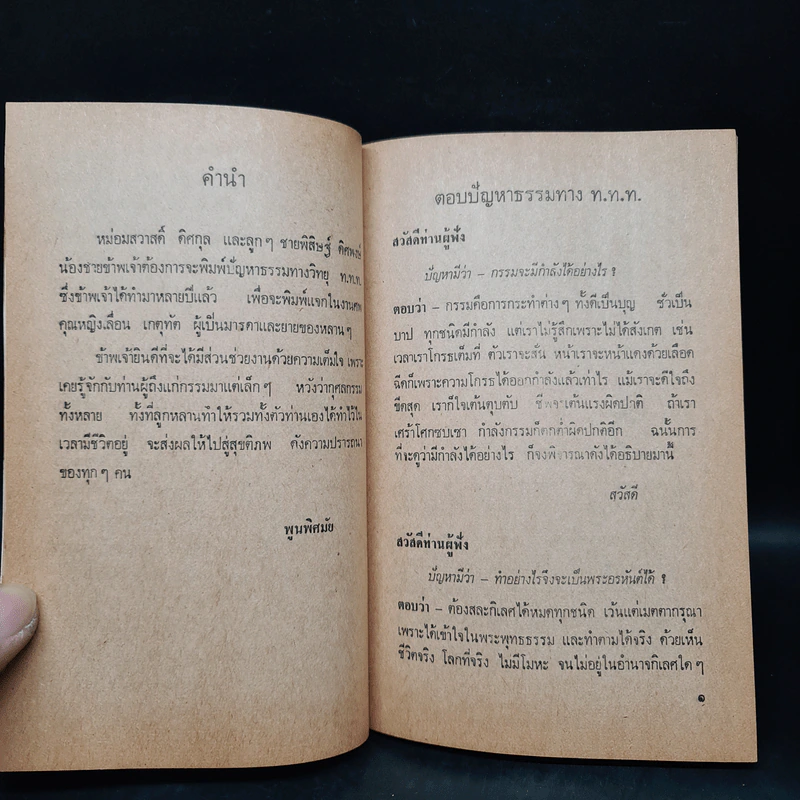 คำนำ
หม่อมสวาสดิ์ ดิศกุล และลูกๆ ชายพิสิษฐ์ ดิศพงษ์
น้องชายข้าพเจ้าต้องการจะพิมพ์ปัญหาธรรมทางวิทยุ ท.ท.ท.
ซึ่งข้าพเจ้าได้ทำมาหลายปีแล้ว เพื่อจะพิมพ์แจกในงานศพ
คุณหญิงเลื่อน เกตุทัต ผู้เป็นมารดาและยายของหลานๆ
ข้าพเจ้ายินดีที่จะได้มีส่วนช่วยงานด้วยความเต็มใจ เพราะ
เคยรู้จักกับท่านผู้ถึงแก่กรรมมาแต่เล็กๆ หวังว่ากุศลกรรม
ทั้งหลาย ทั้งที่ลูกหลานทำให้รวมทั้งตัวท่านเองได้ทำไว้ใน
เวลามีชีวิตอยู่ จะส่งผลให้ไปสู่สุขติภพ ดังความปรารถนา
ของทุกๆ คน
พูนพิศมัย
ตอบปัญหาธรรมทาง ท.ท.ท.
สวัสดีท่านผู้ฟัง
ปัญหามีว่า – กรรมจะมีกำลังได้อย่างไร ?
ตอบว่า – กรรมคือการกระทำต่างๆ ทั้งดีเป็นบุญ ชั่วเป็น
บาป ทุกชนิดมีกำลัง แต่เราไม่รู้สึกเพราะไม่ได้สังเกต เช่น
เวลาเราโกรธเต็มที่ ตัวเราจะสั่น หน้าเราจะหน้าแดงด้วยเลือด
ฉีดก็เพราะความโกรธได้ออกกำลังแล้วเท่าไร แม้เราจะดีใจถึง
ขีดสุด เราก็ใจเต้นตุบตับ ชีพจรเต้นแรงผิดปาติ ถ้าเรา
เศร้าโศกซบเซา กำลังกรรมก็ตกต่ำผิดปกติอีก ฉนั้นการ
ที่จะดูว่ามีกำลังได้อย่างไร ก็จงพิจารณาดังได้อธิบายมานี้
สวัสดี
สวัสดีท่านผู้ฟัง
ปัญหามีว่า – ทำอย่างไรจึงจะเป็นพระอรหันต์ได้ ?
ตอบว่า – ต้องสละกิเลศได้หมดทุกชนิด เว้นแต่เมตตากรุณา
เพราะได้เข้าใจในพระพุทธธรรม และทำตามได้จริง ด้วยเห็น
ชีวิตจริง โลกที่จริง ไม่มีโมหะ จนไม่อยู่ในอำนาจกิเลศใดๆ
๑